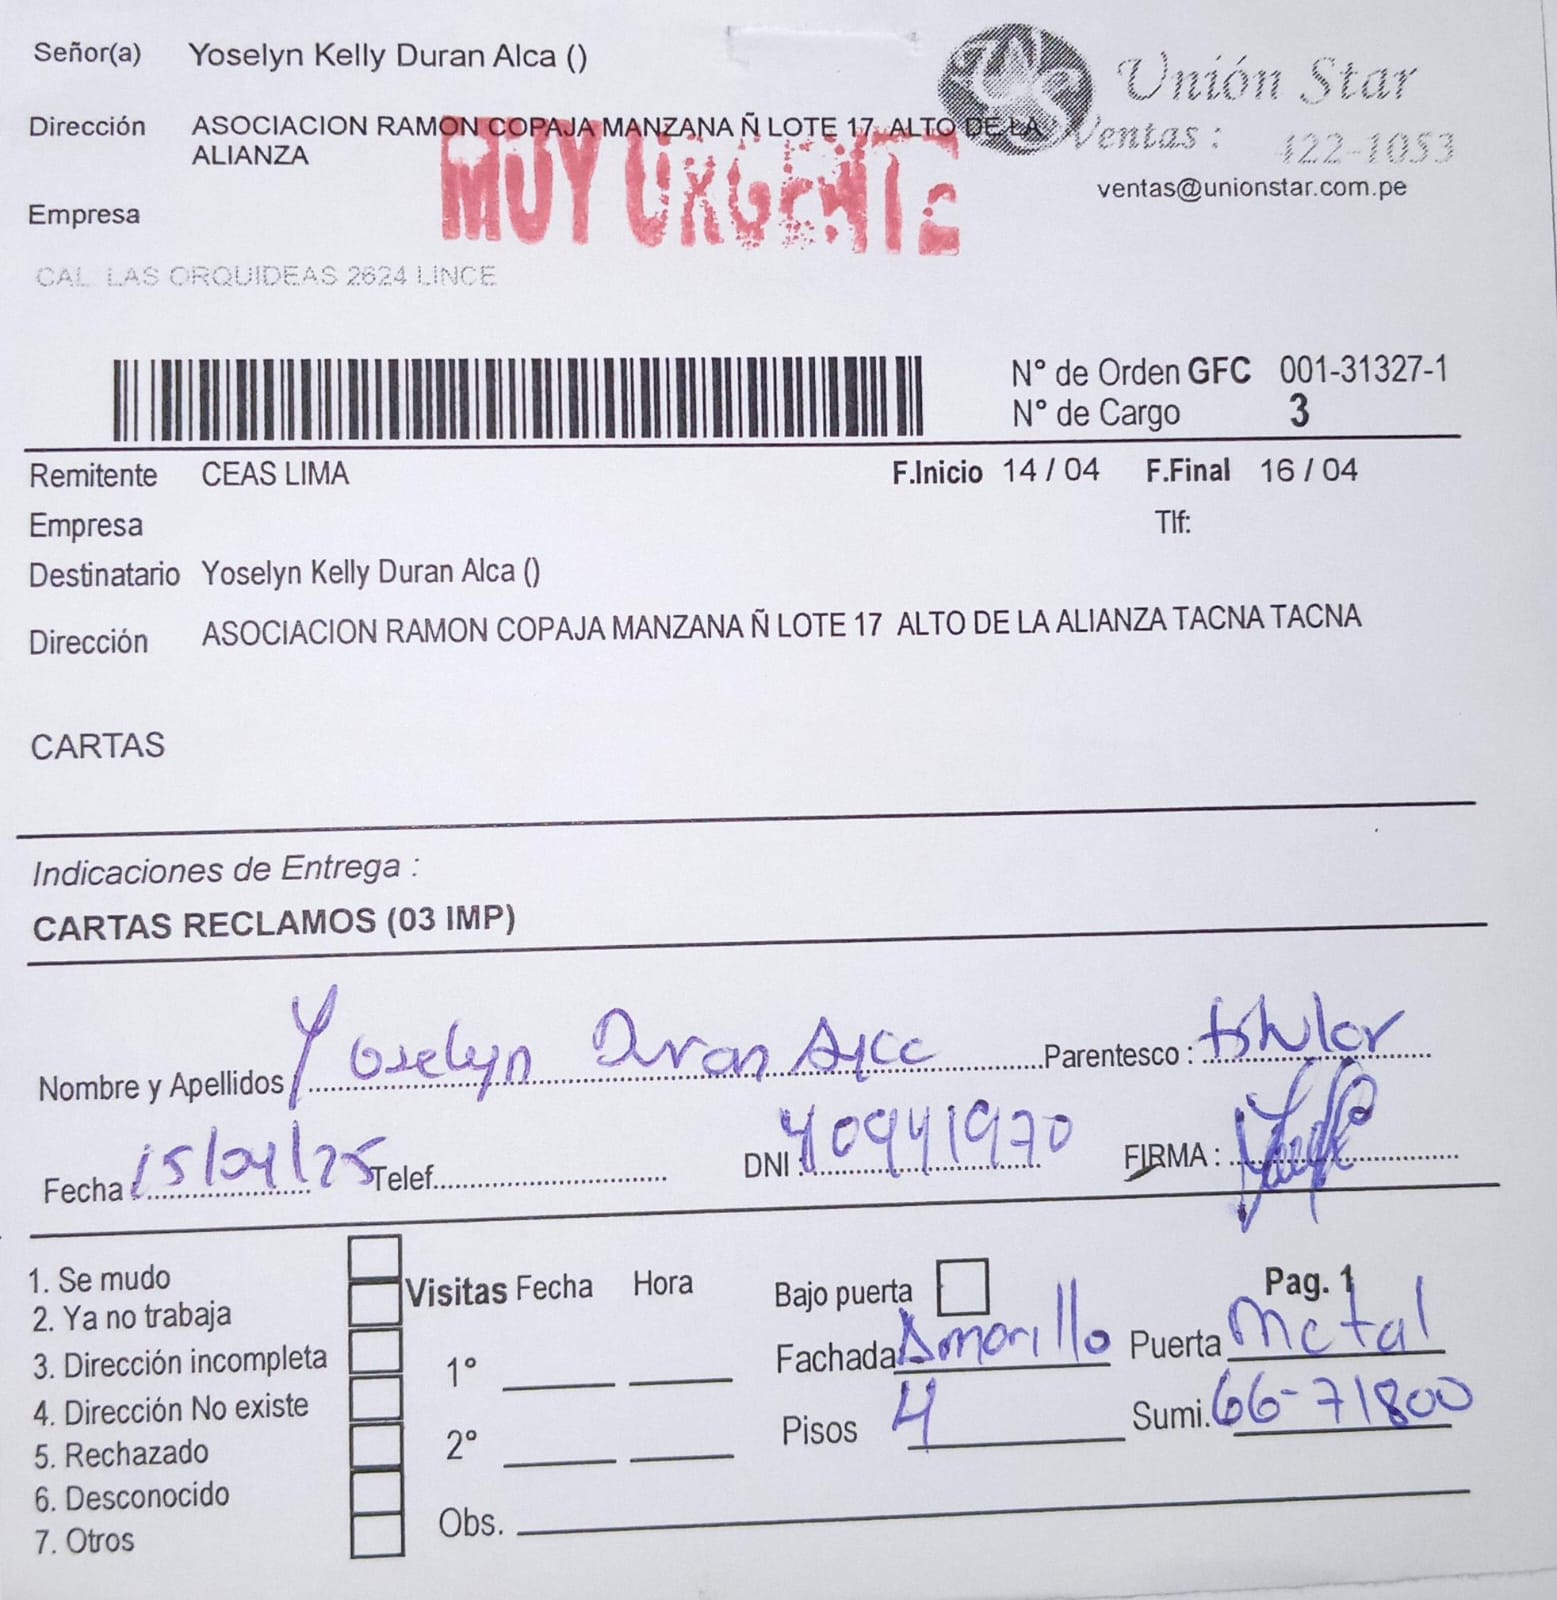 Señor(a) Yoselyn Kelly Duran Alca ()
Unión Star
Dirección ASOCIACION RAMON COPAJA MANZANA Ñ LOTE 17 ALTO DE LA
ALIANZA
Ventas : 422-1053
MUY URGENTE
ventas@unionstar.com.pe
Empresa
CAL. LAS ORQUIDEAS 2624 LINCE
N° de Orden GFC 001-31327-1
N° de Cargo 3
Remitente CEAS LIMA F.Inicio 14 / 04 F.Final 16 / 04
Empresa Tlf:
Destinatario Yoselyn Kelly Duran Alca ()
Dirección ASOCIACION RAMON COPAJA MANZANA Ñ LOTE 17 ALTO DE LA ALIANZA TACNA TACNA
CARTAS
Indicaciones de Entrega :
CARTAS RECLAMOS (03 IMP)
Nombre y Apellidos Yoselyn Duran Alca Parentesco : titular
Fecha 15/04/25 Telef. DNI : 40941970 FIRMA :
1. Se mudo
2. Ya no trabaja
3. Dirección incompleta
4. Dirección No existe
5. Rechazado
6. Desconocido
7. Otros
Visitas Fecha Hora
1°
2°
Obs.
Bajo puerta Pag. 1
Fachada Amarillo Puerta Metal
Pisos 4 Sumi. 66-71800